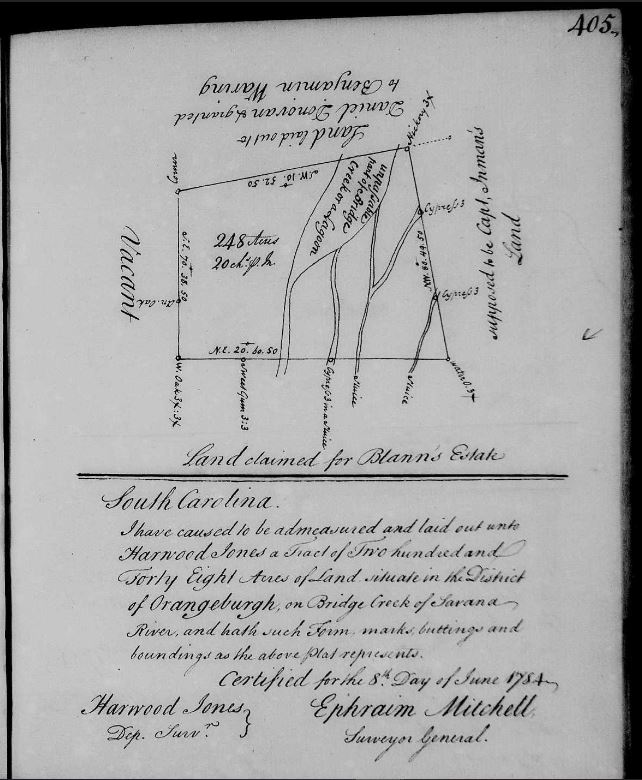 405.
Land laid out to
Daniel Donovan & granted
to Benjamin Waring
Hickory 3X
S.W. 10. 52. 50
Creek or a Lagoon
part of Bridge
Supposed to be Capt. Inman's
Land
Vacant
248 Acres
20 ch. P. In.
Cypress 3
Cypress 3
N.E. 20. 60. 50
W. Oak 3X: 3X
Sweet Gum 3:3
Cypress 3 in a sluice
sluice
sluice
Land claimed for Blann's Estate
South Carolina.
I have caused to be admeasured and laid out unto
Harwood Jones a Tract of Two hundred and
Forty Eight Acres of Land situate in the District
of Orangeburgh, on Bridge Creek of Savana
River, and hath such Form, marks, buttings and
boundings as the above plat represents.
Certified for the 8th. Day of June 1784
Harwood Jones } Ephraim Mitchell,
Dep. Survr. Surveyor General.